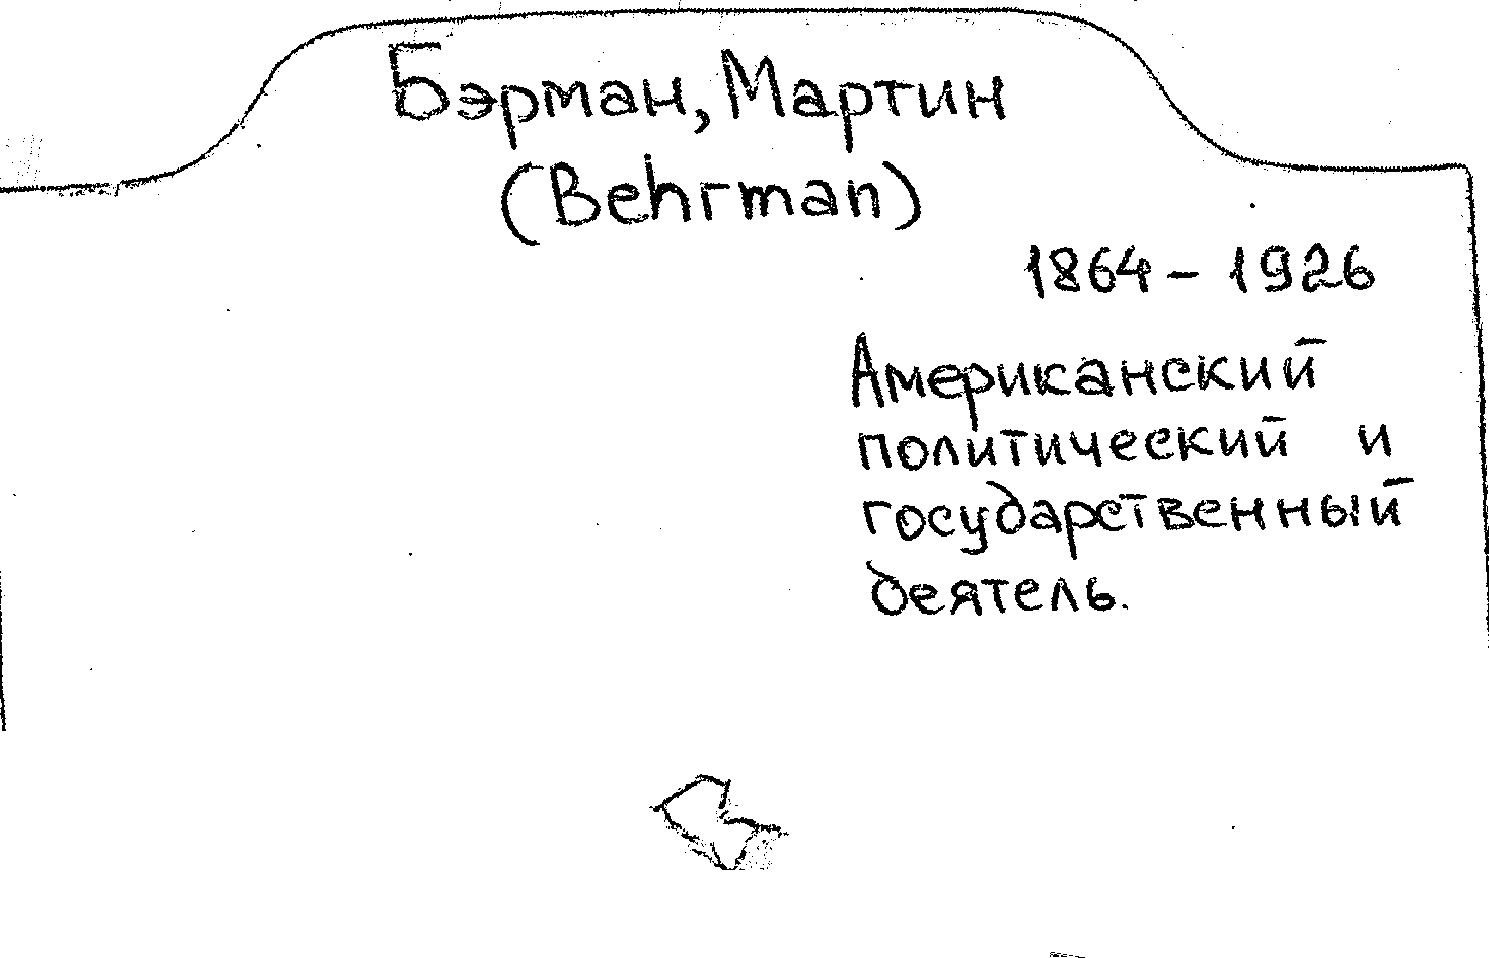 Бэрман, Мартин
(Behrman)
1864 - 1926
Американский
политический и
государственный
деятель.